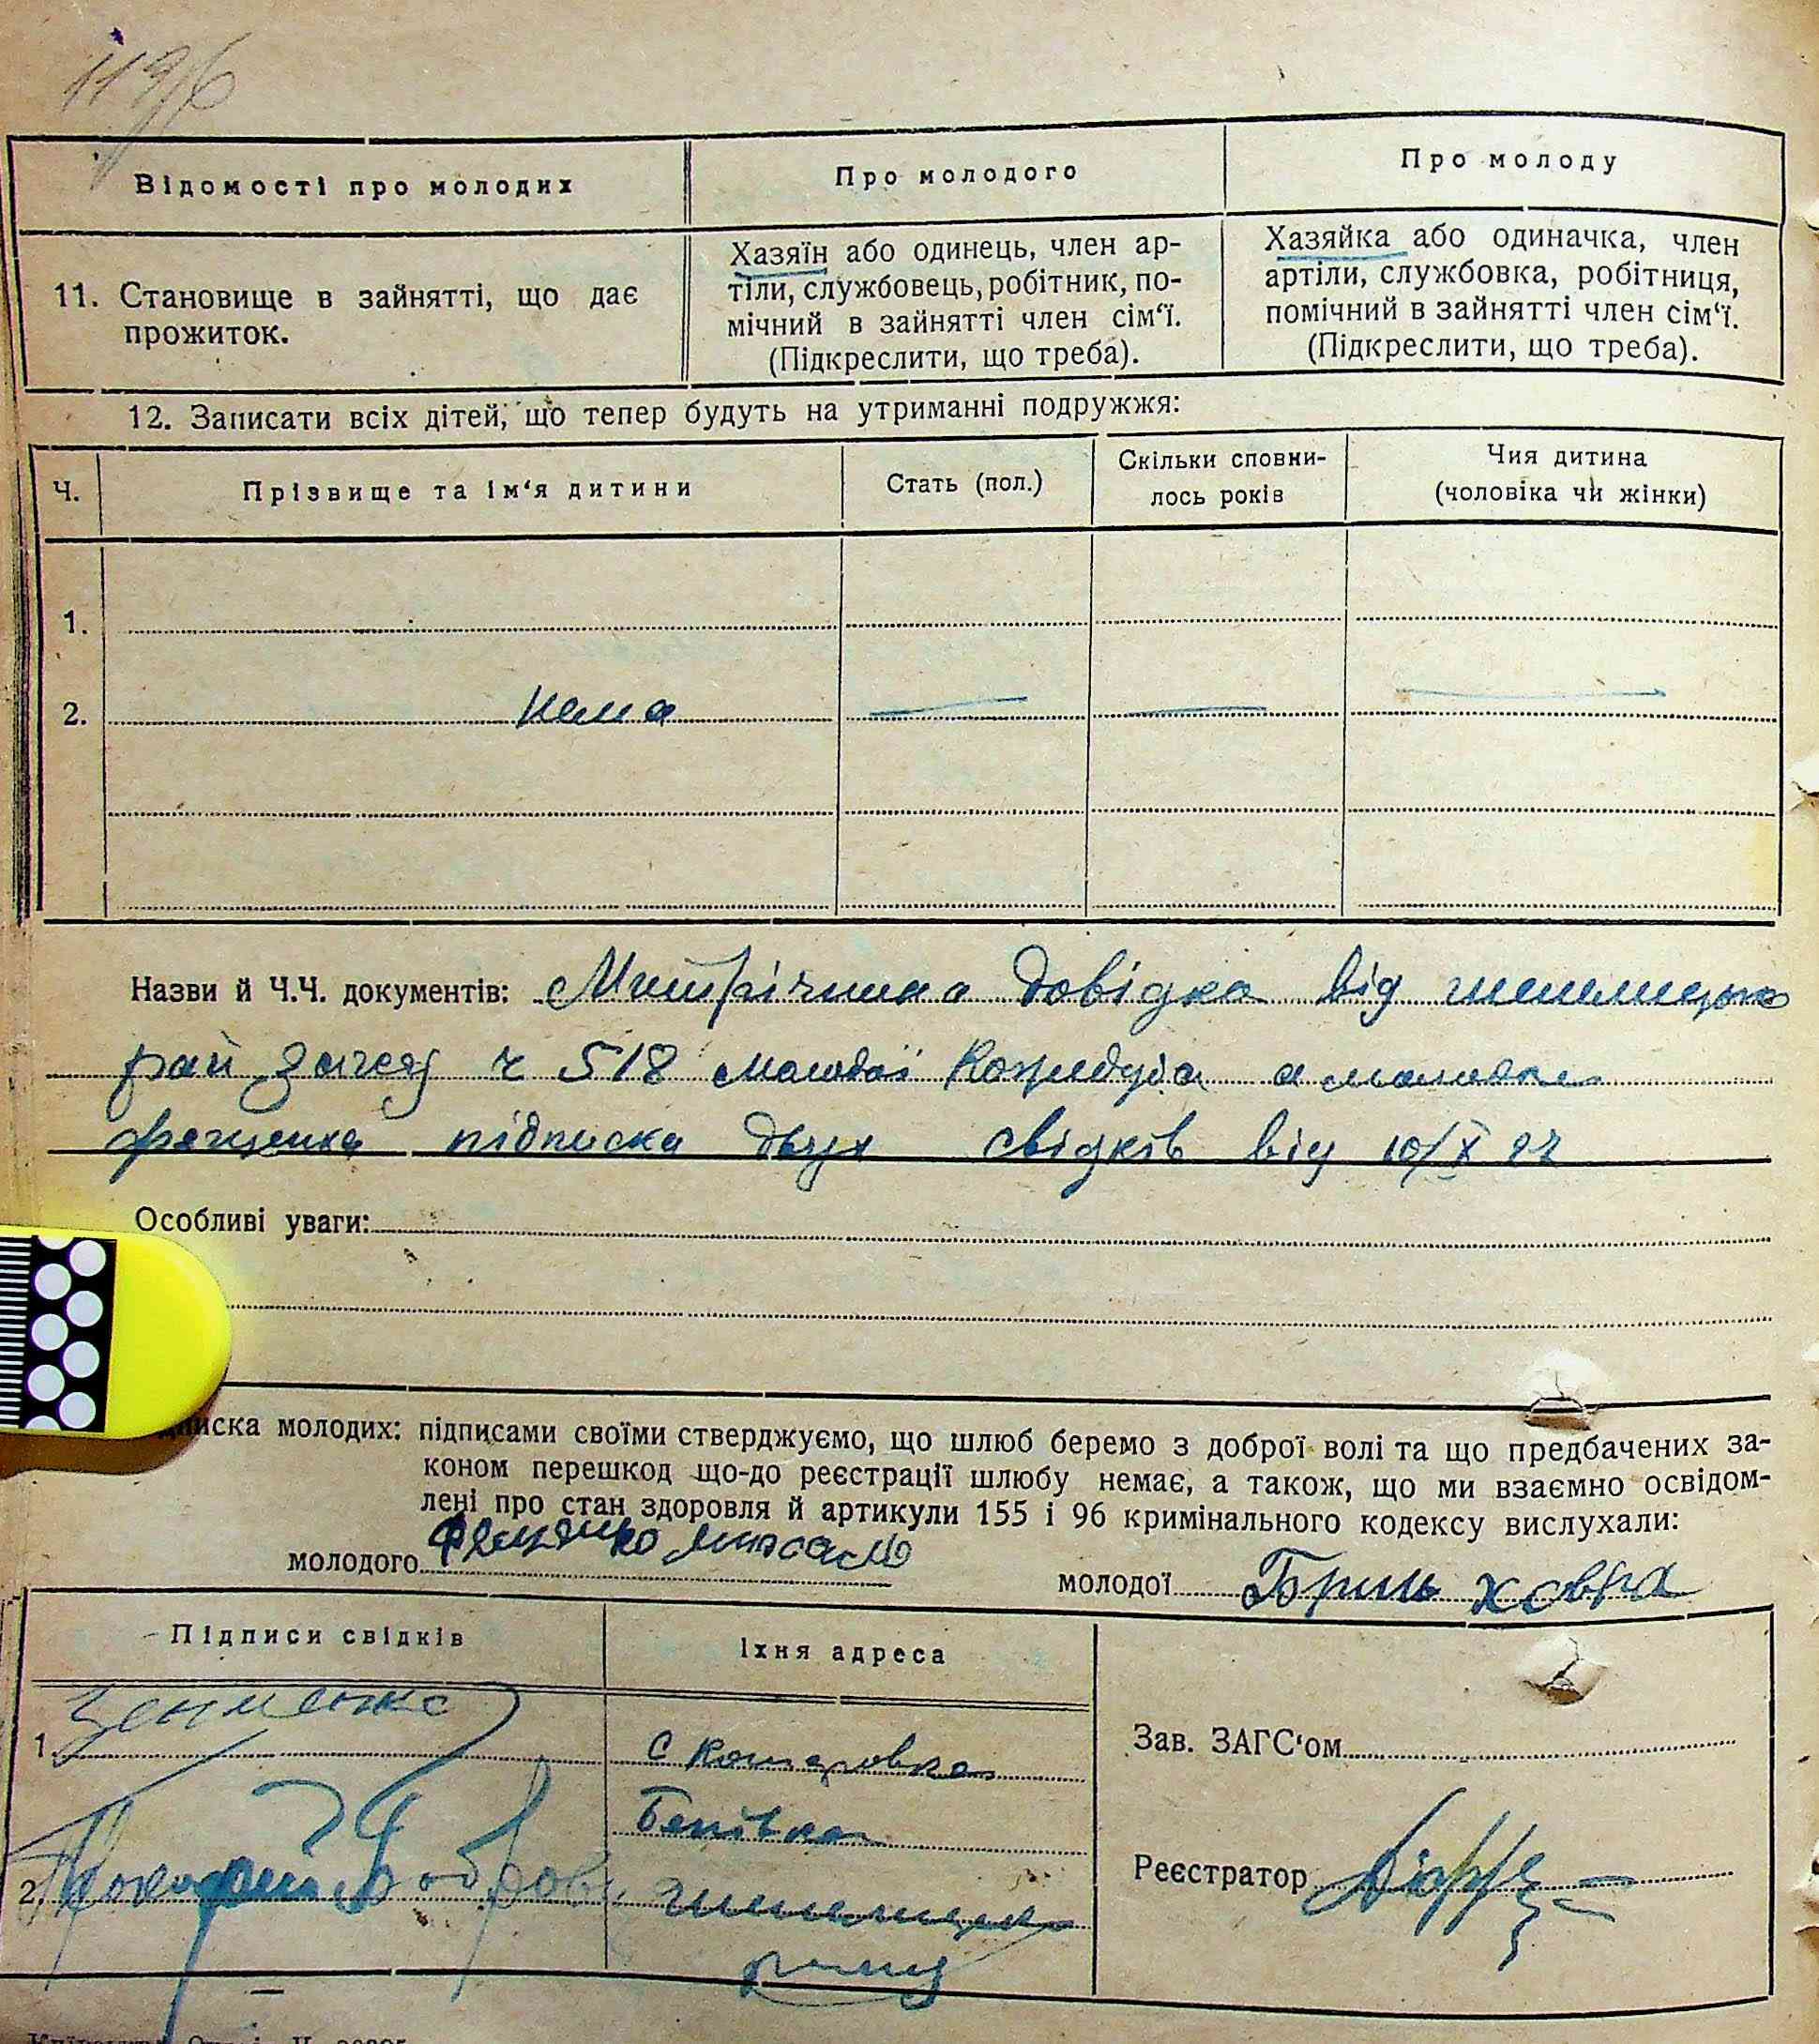 1196
Відомості про молодих
Про молодого
Про молоду
11. Становище в зайнятті, що дає
прожиток.
Хазяїн або одинець, член ар-
тіли, службовець, робітник, по-
мічний в зайнятті член сім‘ї.
(Підкреслити, що треба).
Хазяйка або одиначка, член
артіли, службовка, робітниця,
помічний в зайнятті член сім‘ї.
(Підкреслити, що треба).
12. Записати всіх дітей, що тепер будуть на утриманні подружжя:
Ч.
Прізвище та ім‘я дитини
Стать (пол.)
Скільки сповни-
лось років
Чия дитина
(чоловіка чи жінки)
1.
2. нема
Назви й Ч.Ч. документів: довідка від
рай ч 518 молодої
підписка двух свідків від 10/X
Особливі уваги:
писка молодих: підписами своїми стверджуємо, що шлюб беремо з доброї волі та що предбачених за-
коном перешкод що-до реєстрації шлюбу немає, а також, що ми взаємно освідом-
лені про стан здоровля й артикули 155 і 96 кримінального кодексу вислухали:
молодого
молодої Бриль ховра
Підписи свідків
Їхня адреса
1.
с
2.
Зав. ЗАГС‘ом
Реєстратор